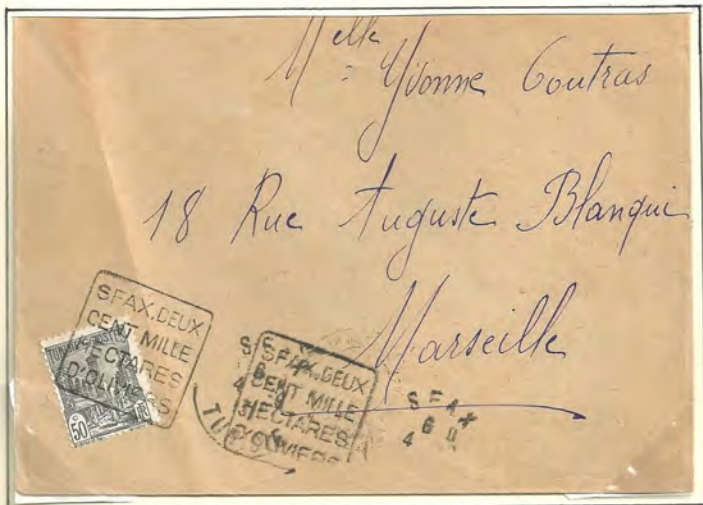 Melle
Yvonne Goutras
18 Rue Auguste Blanqui
Marseille
SFAX.DEUX
CENT MILLE
HECTARES
D'OLIVIERS
50
SFAX.DEUX
CENT MILLE
HECTARES
D'OLIVIERS
SFAX
6 11
4